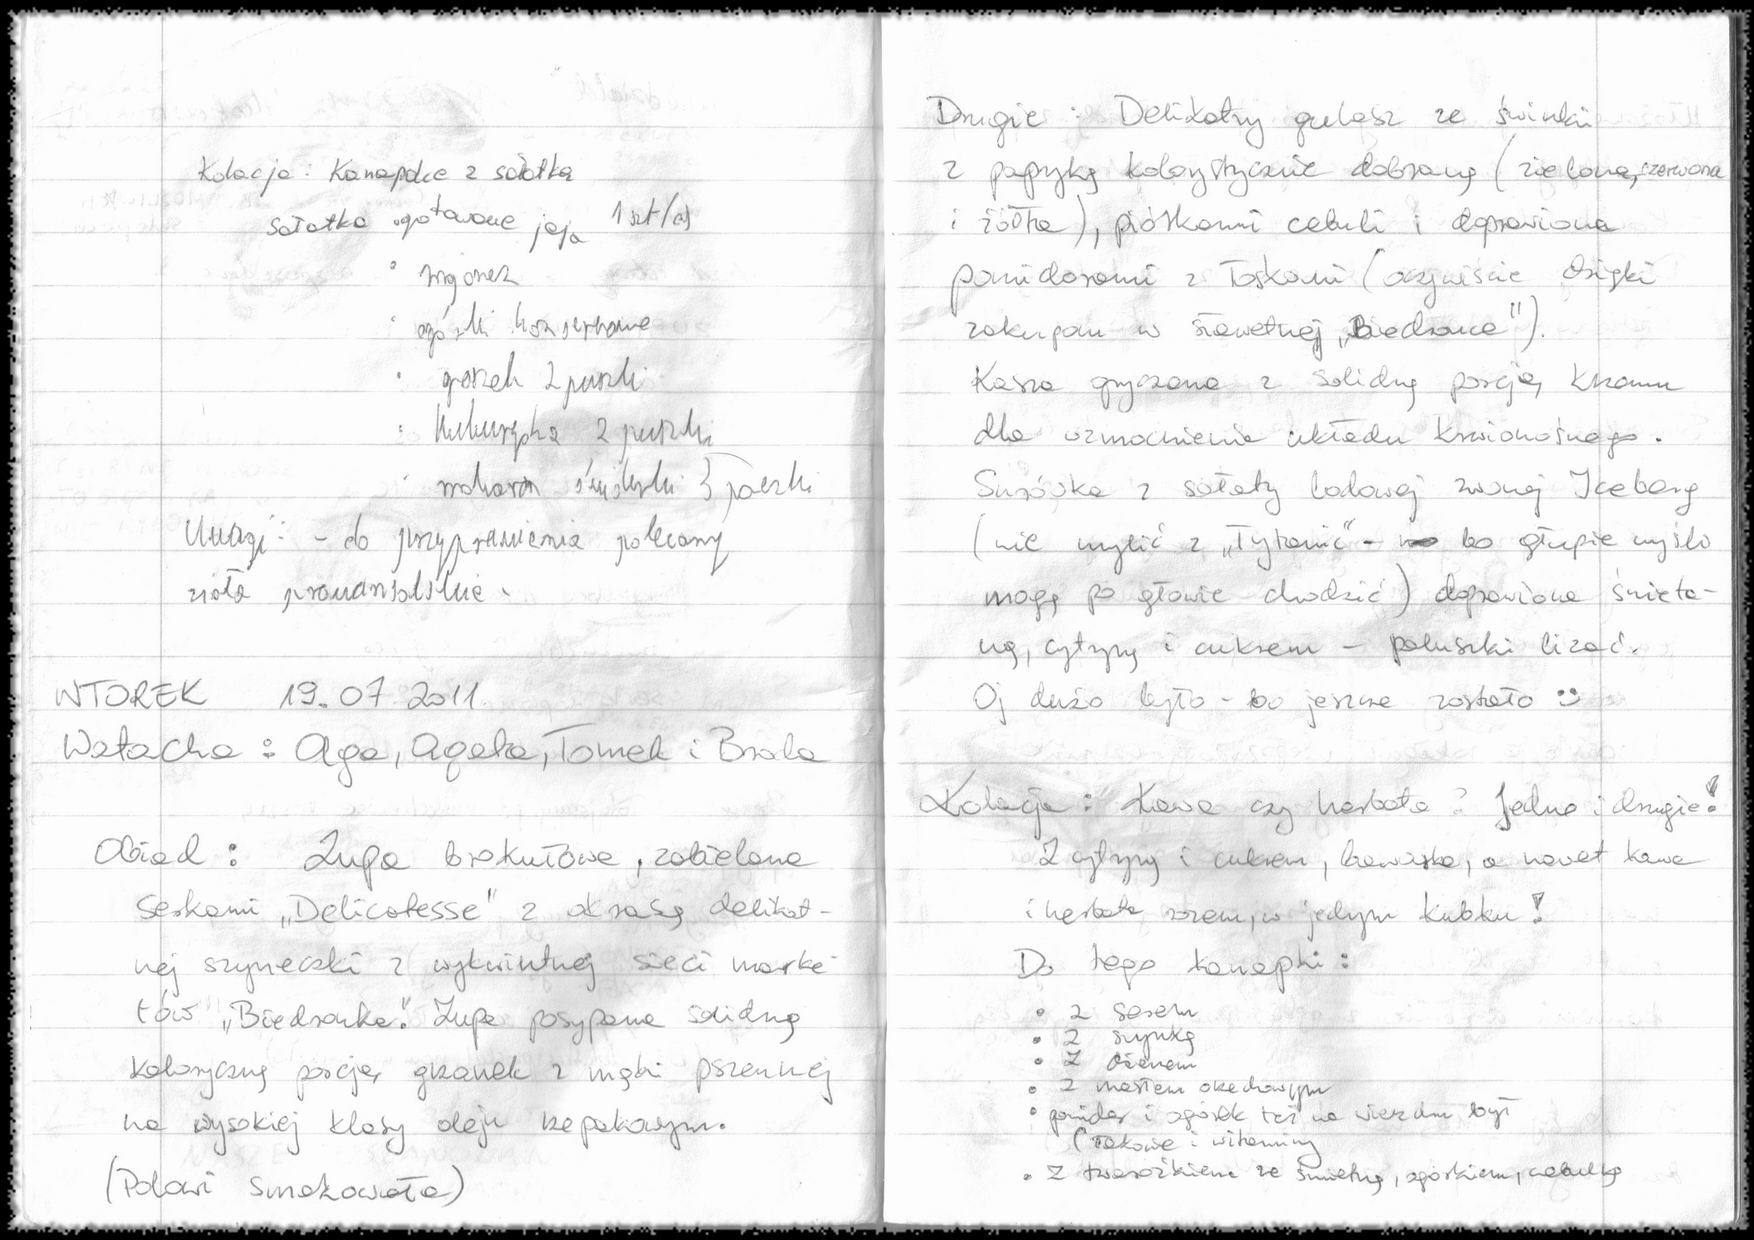 Kolacja: Kanapki z sałatką
sałatka • gotowane jaja 1 szt/os
• majonez
• ogórki konserwowe
• groszek 2 puszki
• kukurydza 2 puszki
• makaron świderki 3 paczki
Uwagi: - do przyprawienia polecamy
zioła prowansalskie.
WTOREK 19.07.2011.
Watacha: Aga, Agata, Tomek i
Obiad: Zupa brokułowa, zabielana
serkami „Delicatesse" z okrasą delikat-
nej szyneczki z wykwintnej sieci marke-
tów „Biedronka". Zupa posypana solidną
kaloryczną porcją grzanek z mąki pszennej
na wysokiej klasy oleju rzepakowym.
(Polowi smakowała)
Drugie: Delikatny gulasz ze świnki
z papryką kolorystycznie dobraną (zielona, czerwona
i żółta), piórkami cebuli i doprawiona
pomidorami z Łaskami (oczywiście dzięki
zakupom w sławetnej „Biedronce").
Kasza gryczana z solidną porcją
dla wzmocnienia układu krwionośnego.
Surówka z sałaty lodowej zwanej Iceberg
(nie mylić z „Tytanic" - bo głupie myśli
mogą po głowie chodzić) doprawiona śmieta-
ną, cytryną i cukrem - paluszki lizać.
Oj dużo było - bo jeszcze zostało :)
Kolacja: Kawa czy herbata? Jedno i drugie!
Z cytryną i cukrem, kawusia, a nawet kawa
i herbata razem, w jednym kubku!
Do tego kanapki:
• z serem
• z szynką
• z dżemem
• z masłem orzechowym
• pomidor i ogórek też na wierzchu był
(takowe i witaminy
• z twarożkiem ze śmietaną, ogórkiem, cebulką